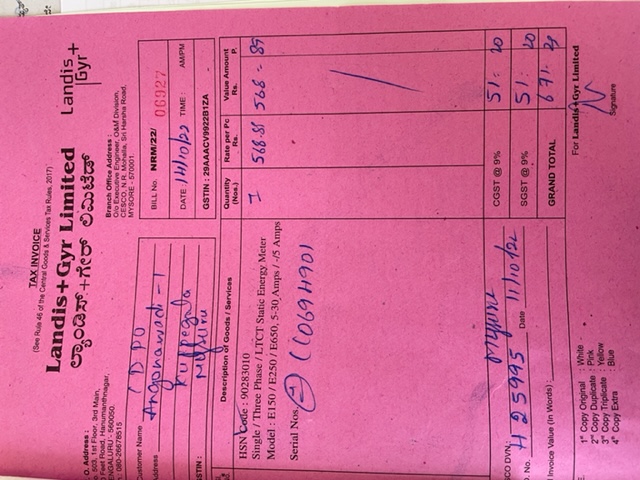 TAX INVOICE
(See Rule 46 of the Central Goods & Services Tax Rules, 2017)
Landis+Gyr Limited
ಲ್ಯಾಂಡಿಸ್+ಗೇರ್ ಲಿಮಿಟೆಡ್
Landis
Gyr+
O. Address :
503, 1st Floor, 3rd Main,
Feet Road, Hanumanthnagar,
ENGALURU - 560050.
080-26678515
Branch Office Address :
C/o Executive Engineer, O&M Division,
CESCO, N.R. Mohalla, Sri Harsha Road,
MYSORE - 570001.
Customer Name CDPO
Address Anganawadi - 1
Kuppegala
Mysuru
GSTIN :
BILL No. NRM/22/ 06927
DATE 14/10/22 TIME : AM/PM
GSTIN : 29AAACV9922B1ZA
Description of Goods / Services
Quantity (Nos.)
Rate per Pc Rs.
Value Amount Rs. P.
HSN Code : 90283010
Single / Three Phase / LTCT Static Energy Meter
Model : E150 / E250 / E650, 5-30 Amps / -/5 Amps
1 568.88 568 - 89
Serial Nos.
CGST @ 9% 51: 20
SGST @ 9% 51: 20
GRAND TOTAL 671- 29
SCO DVN.: Mysuru
D. No. H 25995 Date 11/10/22
Invoice Value (In Words) :
1st Copy Original : White
2nd Copy Duplicate : Pink
3rd Copy Triplicate : Yellow
4th Copy Extra : Blue
For Landis+Gyr Limited
Signature